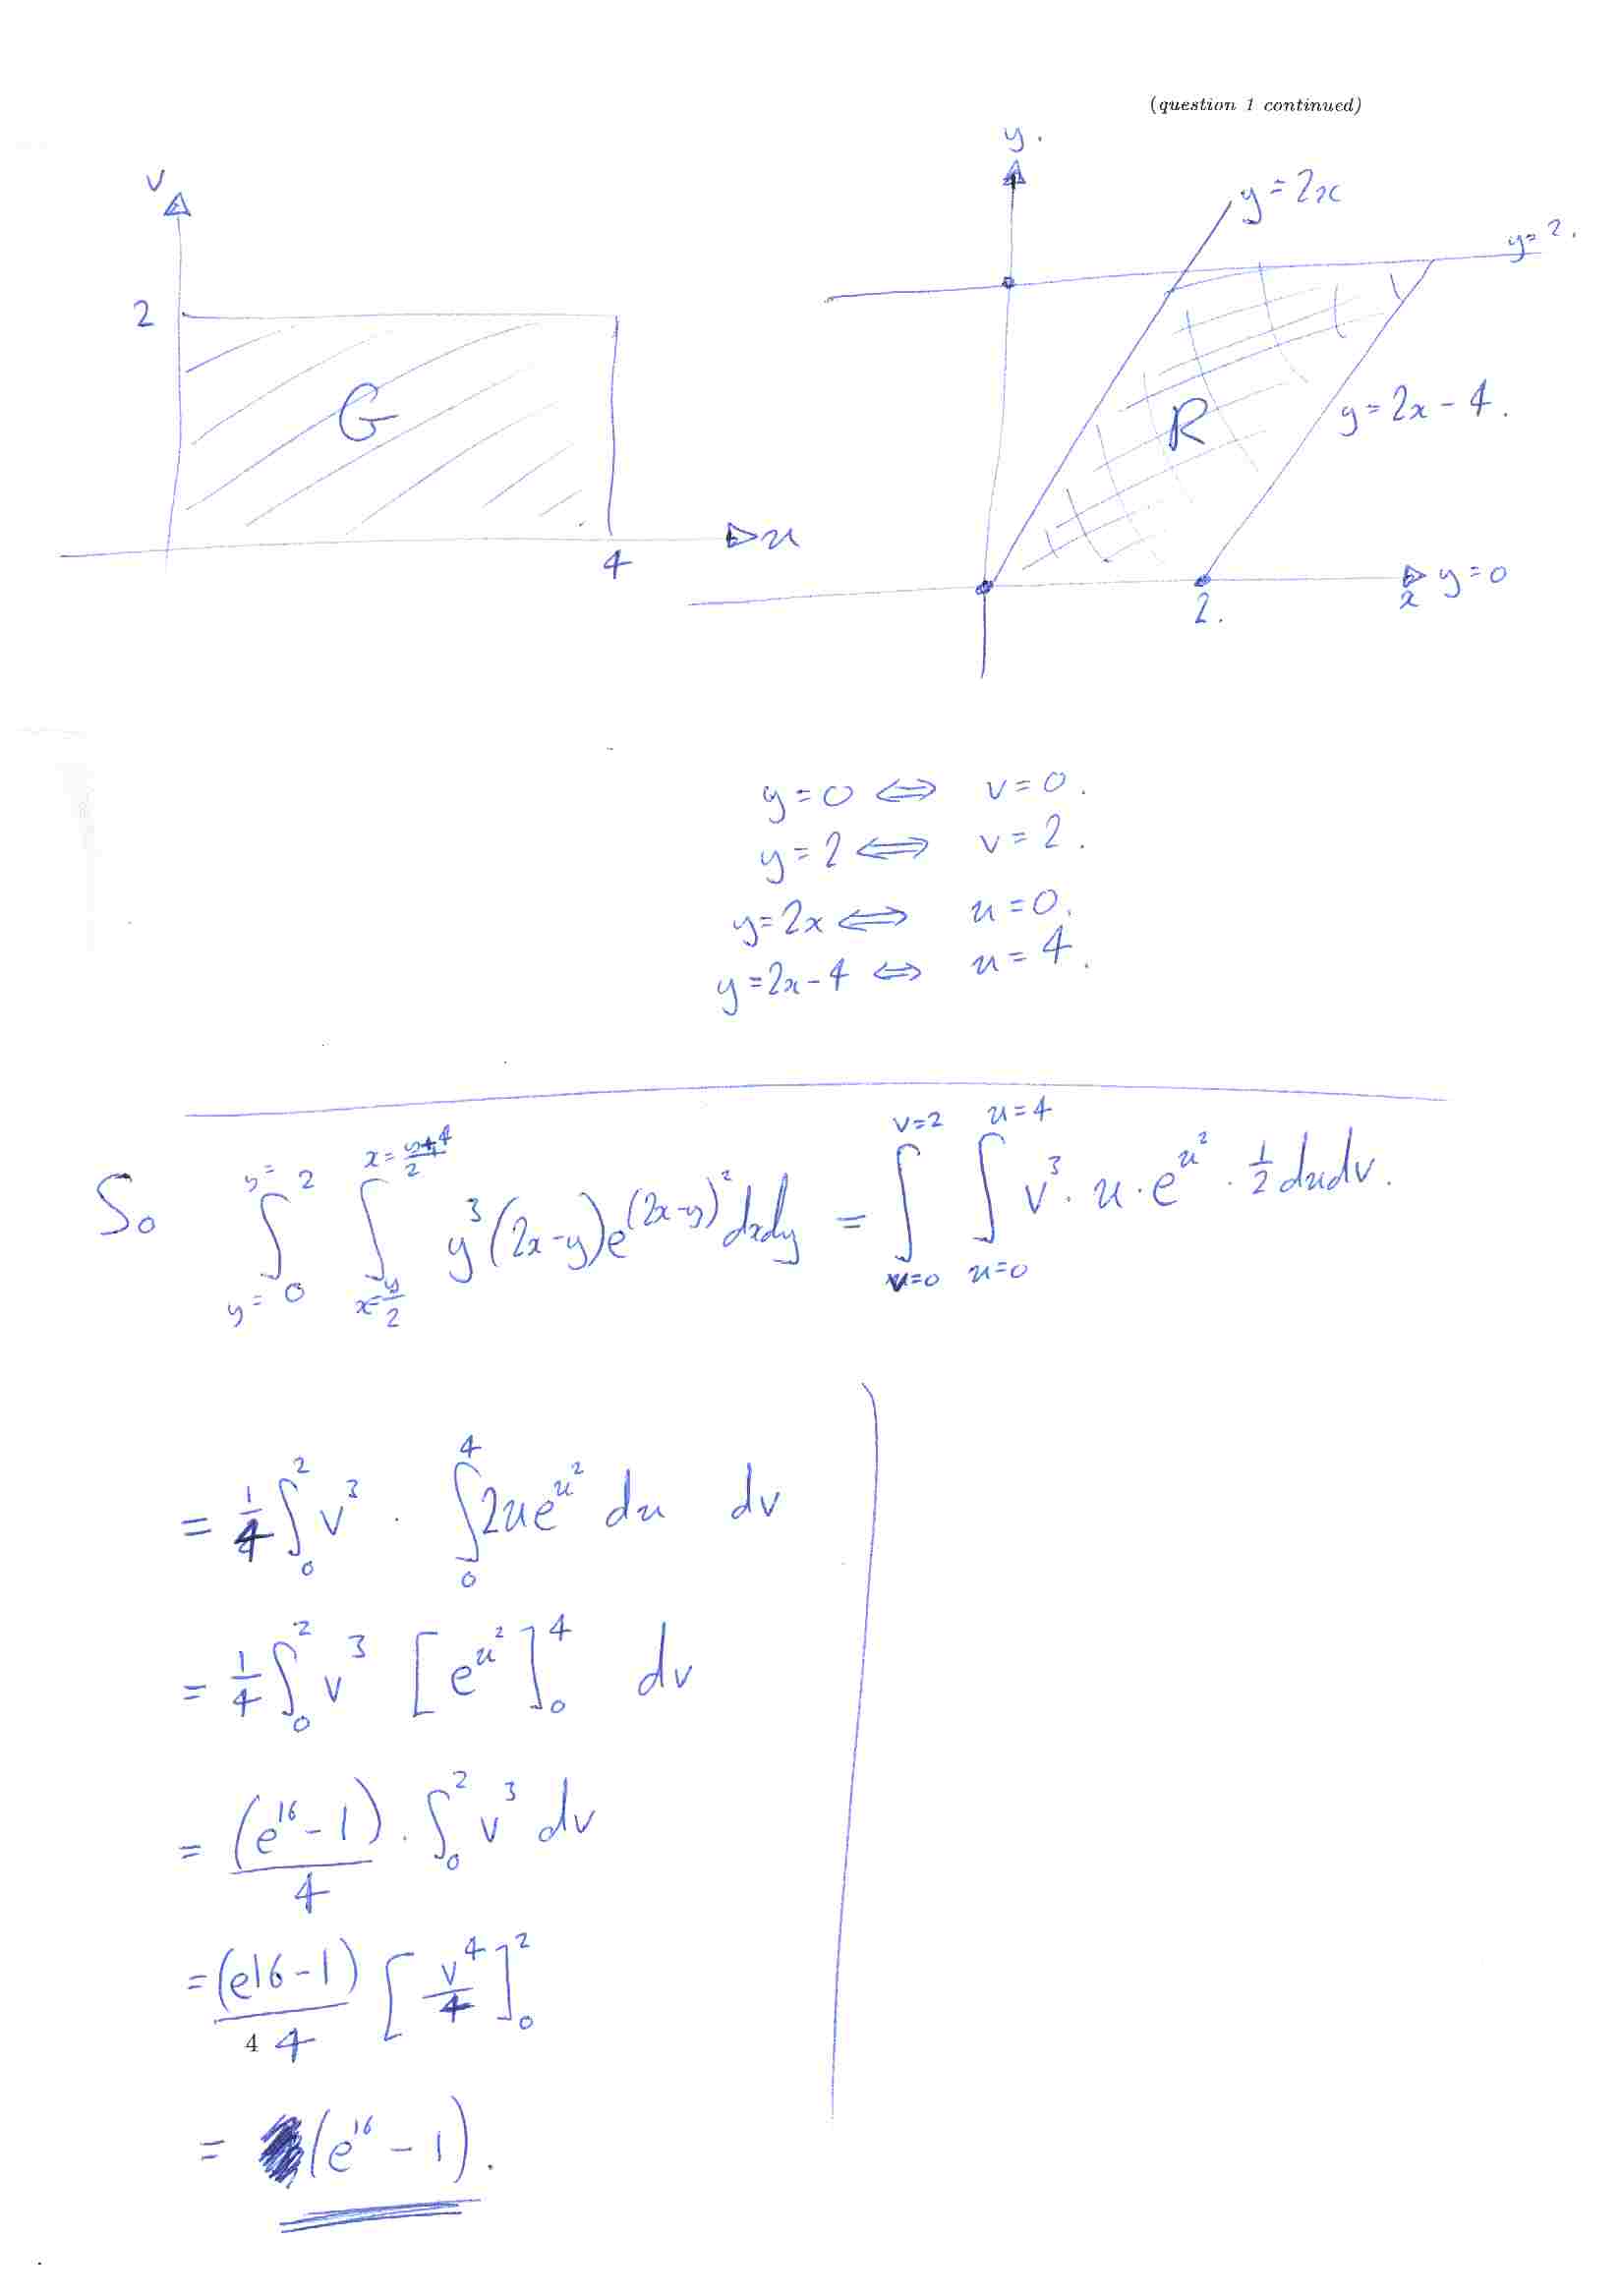 (question 1 continued)
v
2
G
4
u
y.
y=2x
y=2.
R
y=2x-4.
2.
x
y=0
y=0 ⟺ v=0.
y=2 ⟺ v=2.
y=2x ⟺ u=0.
y=2x-4 ⟺ u=4.
So ∫_{y=0}^{y=2} ∫_{x=y/2}^{x=(y+4)/2} y³(2x-y)e^{(2x-y)²}dxdy = ∫_{v=0}^{v=2} ∫_{u=0}^{u=4} v³·u·e^{u²}·½dudv.
= ¼∫_0^2 v³ · ∫_0^4 2ue^{u²} du dv
= ¼∫_0^2 v³ [e^{u²}]_0^4 dv
= (e^{16}-1)/4 · ∫_0^2 v³ dv
= (e16-1)/4 [v⁴/4]_0^2
4
= (e^{16}-1).